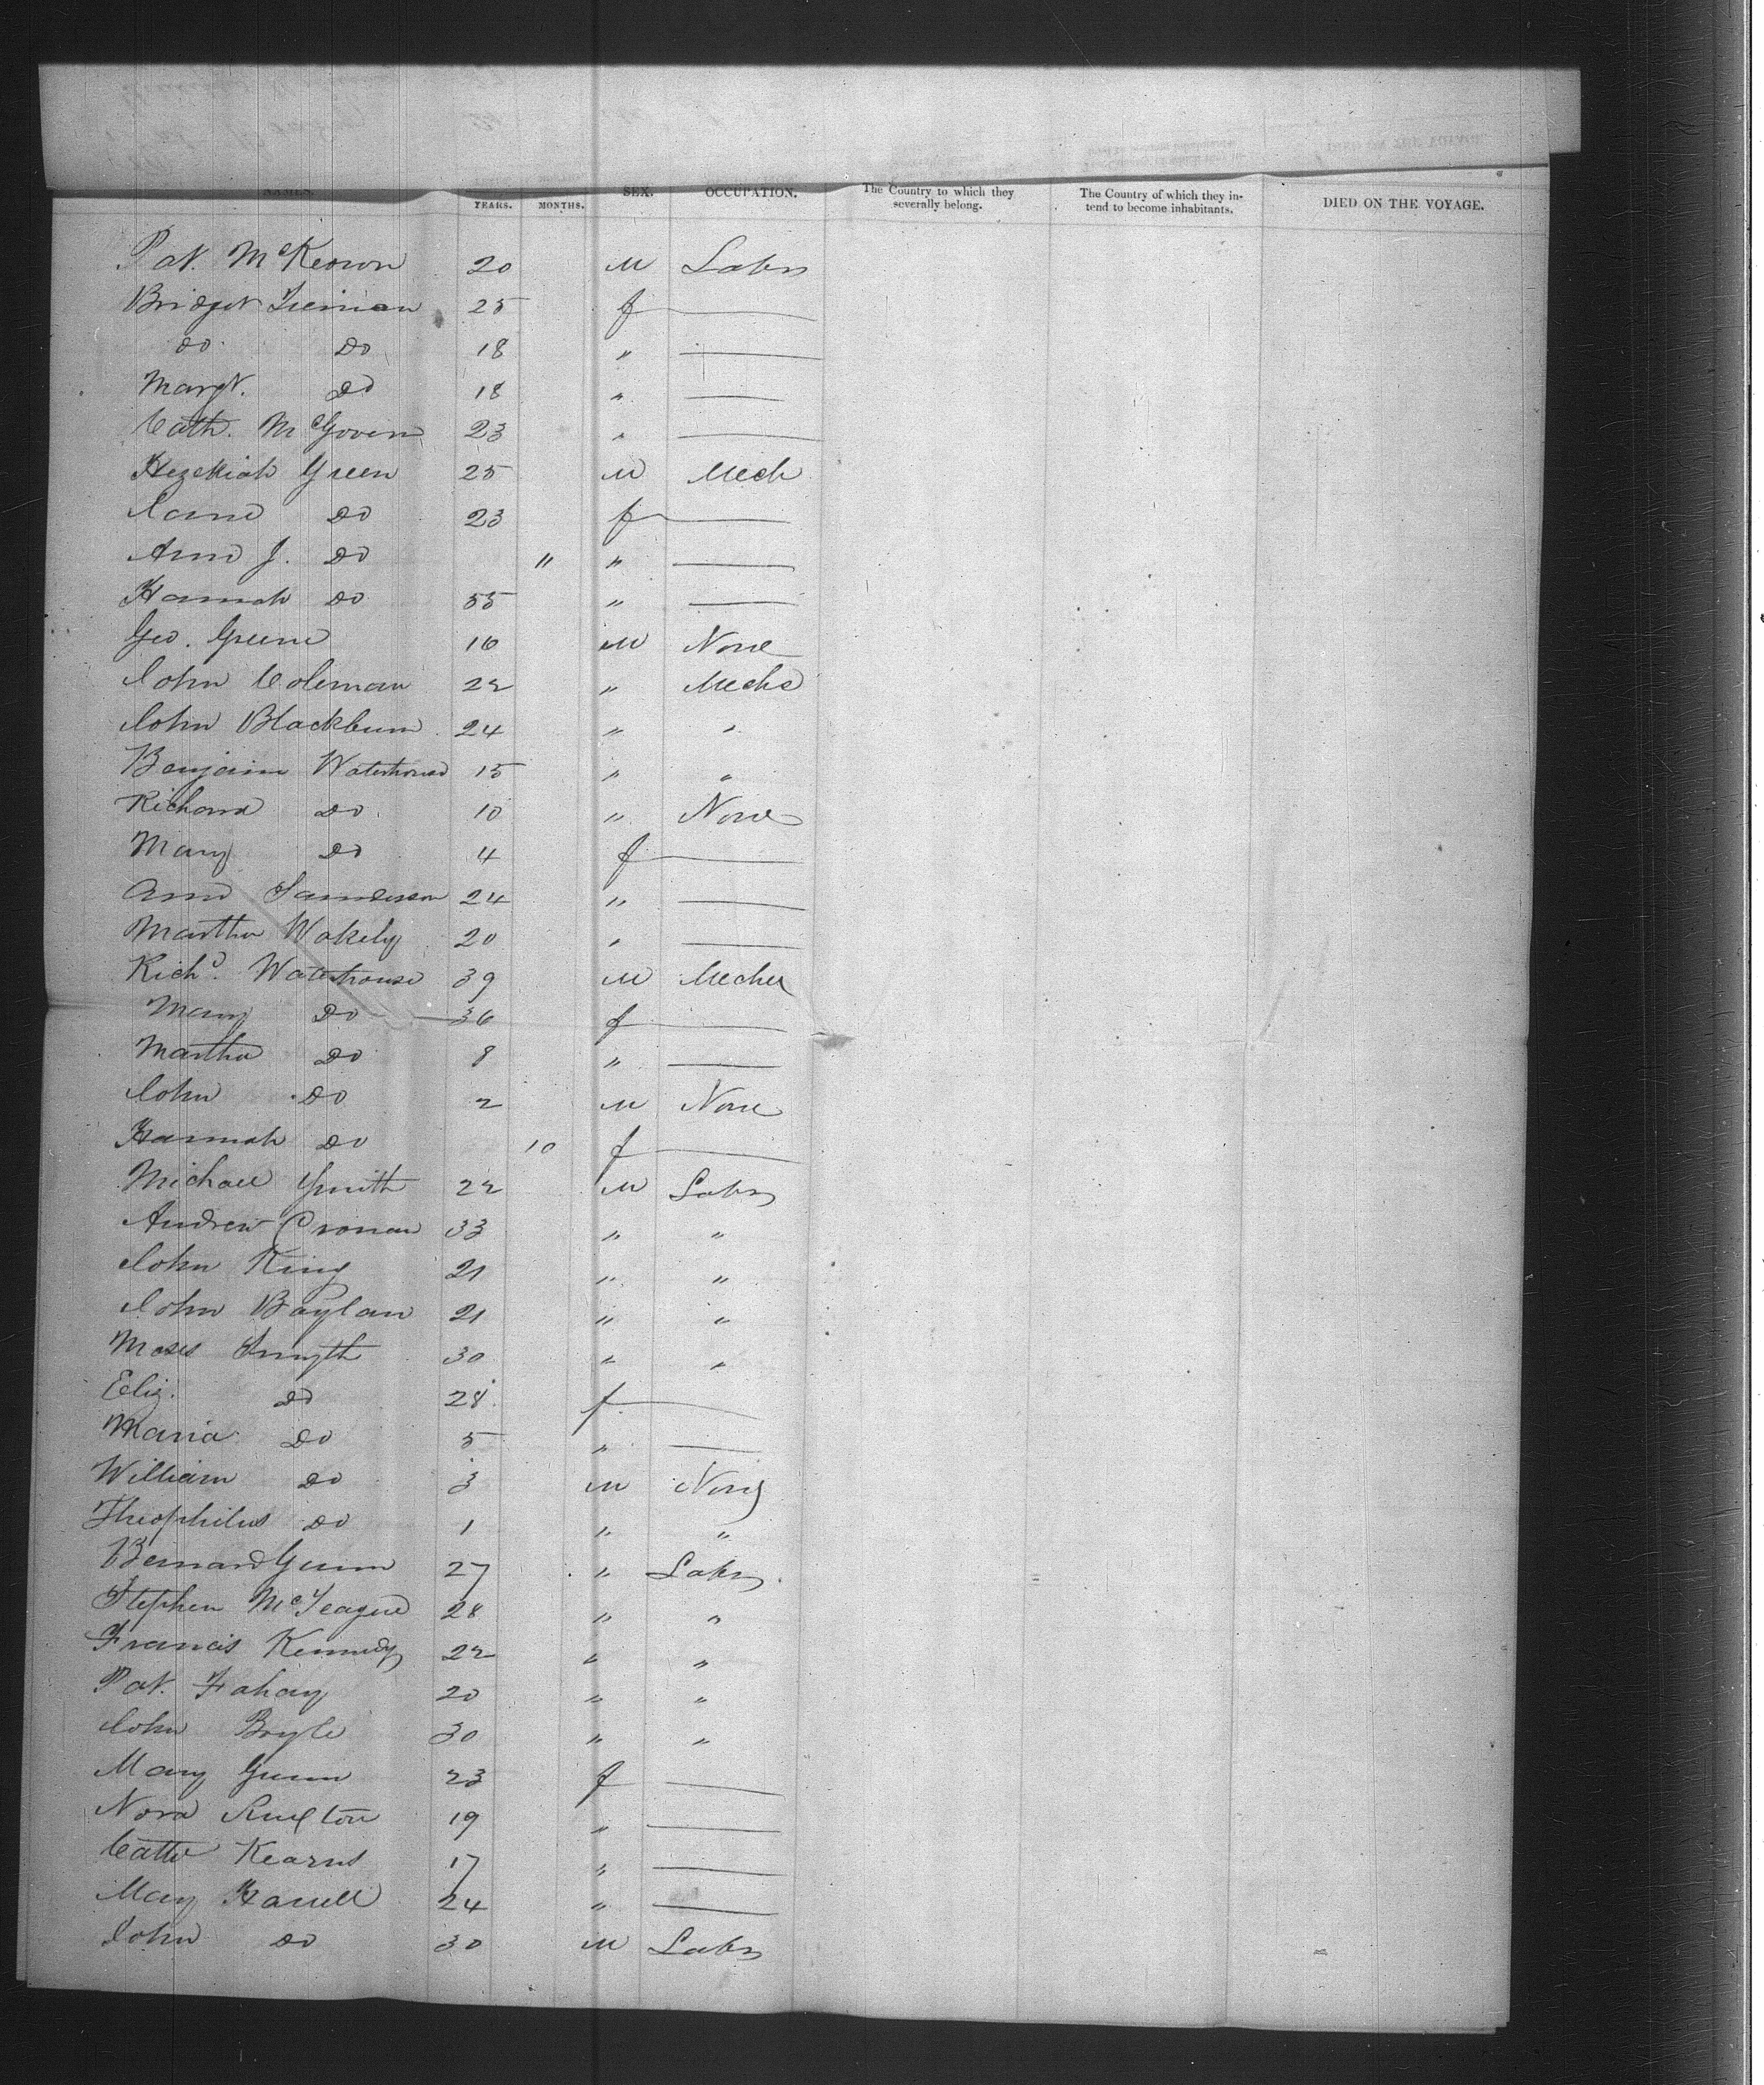 NAMES. YEARS. MONTHS. SEX. OCCUPATION. The Country to which they severally belong. The Country of which they intend to become inhabitants. DIED ON THE VOYAGE.
Pat. McKeown 20 M Labr
Bridget 25 f —
do. Do 18 " —
Margt. Do 18 " —
Cath. McGovern 23 " —
Hezekiah Green 25 M Mech
Jane Do 23 f —
Ann J. Do 11 " —
Hannah Do 55 " —
Geo. Greene 16 M None
John Coleman 22 " Mechc
John Blackburn 24 " "
Benjamin Waterhouse 15 " "
Richard Do 10 " None
Mary Do 4 f —
Ann Sanderson 24 " —
Martha Wakely 20 " —
Richd. Waterhouse 39 M Meche
Mary Do 36 f —
Martha Do 8 " —
John Do 2 M None
Hannah Do 10 f —
Michael Smith 22 M Labr
Andrew Cronan 33 " "
John King 21 " "
John Baylan 21 " "
Moses Smyth 30 " "
Eliz. Do 28 f —
Maria Do 5 " —
William Do 3 M None
Theophilus Do 1 " "
Bernard Gunn 27 " Labr
Stephen McTeague 28 " "
Francis Kennedy 22 " "
Pat. Fahay 20 " "
John Boyle 30 " "
Mary Gunn 23 f —
Nora 19 " —
Cathe Kearns 17 " —
Mary Harrell 24 " —
John Do 30 M Labr